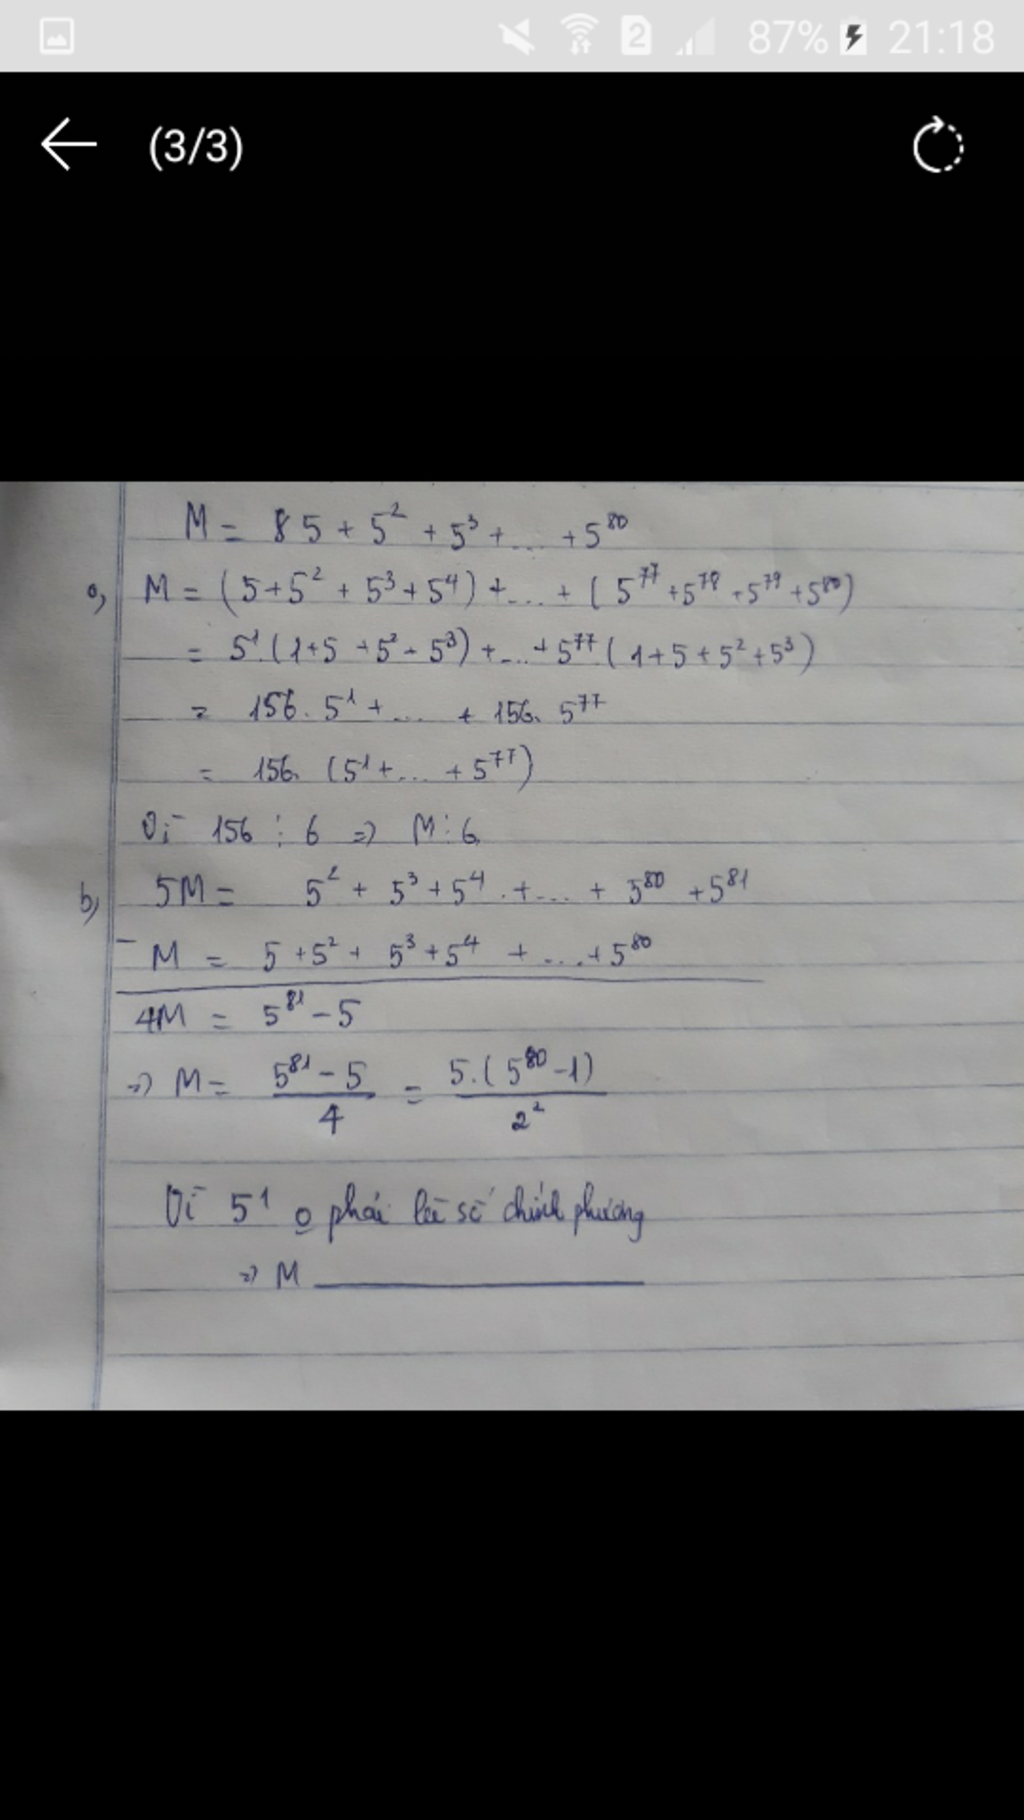 2 87% 21:18
(3/3)
M = 85 + 5² + 5³ + ... + 5⁸⁰
a, M = (5 + 5² + 5³ + 5⁴) + ... + (5⁷⁷ + 5⁷⁸ + 5⁷⁹ + 5⁸⁰)
= 5¹.(1 + 5 + 5² + 5³) + ... + 5⁷⁷.(1 + 5 + 5² + 5³)
= 156. 5¹ + ... + 156. 5⁷⁷
= 156. (5¹ + ... + 5⁷⁷)
Vì 156 ⋮ 6 => M ⋮ 6
b, 5M = 5² + 5³ + 5⁴ + ... + 5⁸⁰ + 5⁸¹
- M = 5 + 5² + 5³ + 5⁴ + ... + 5⁸⁰
4M = 5⁸¹ - 5
=> M = (5⁸¹ - 5)/4 = 5.(5⁸⁰ - 1)/2²
Vì 5¹ o phải là số chính phương
=> M